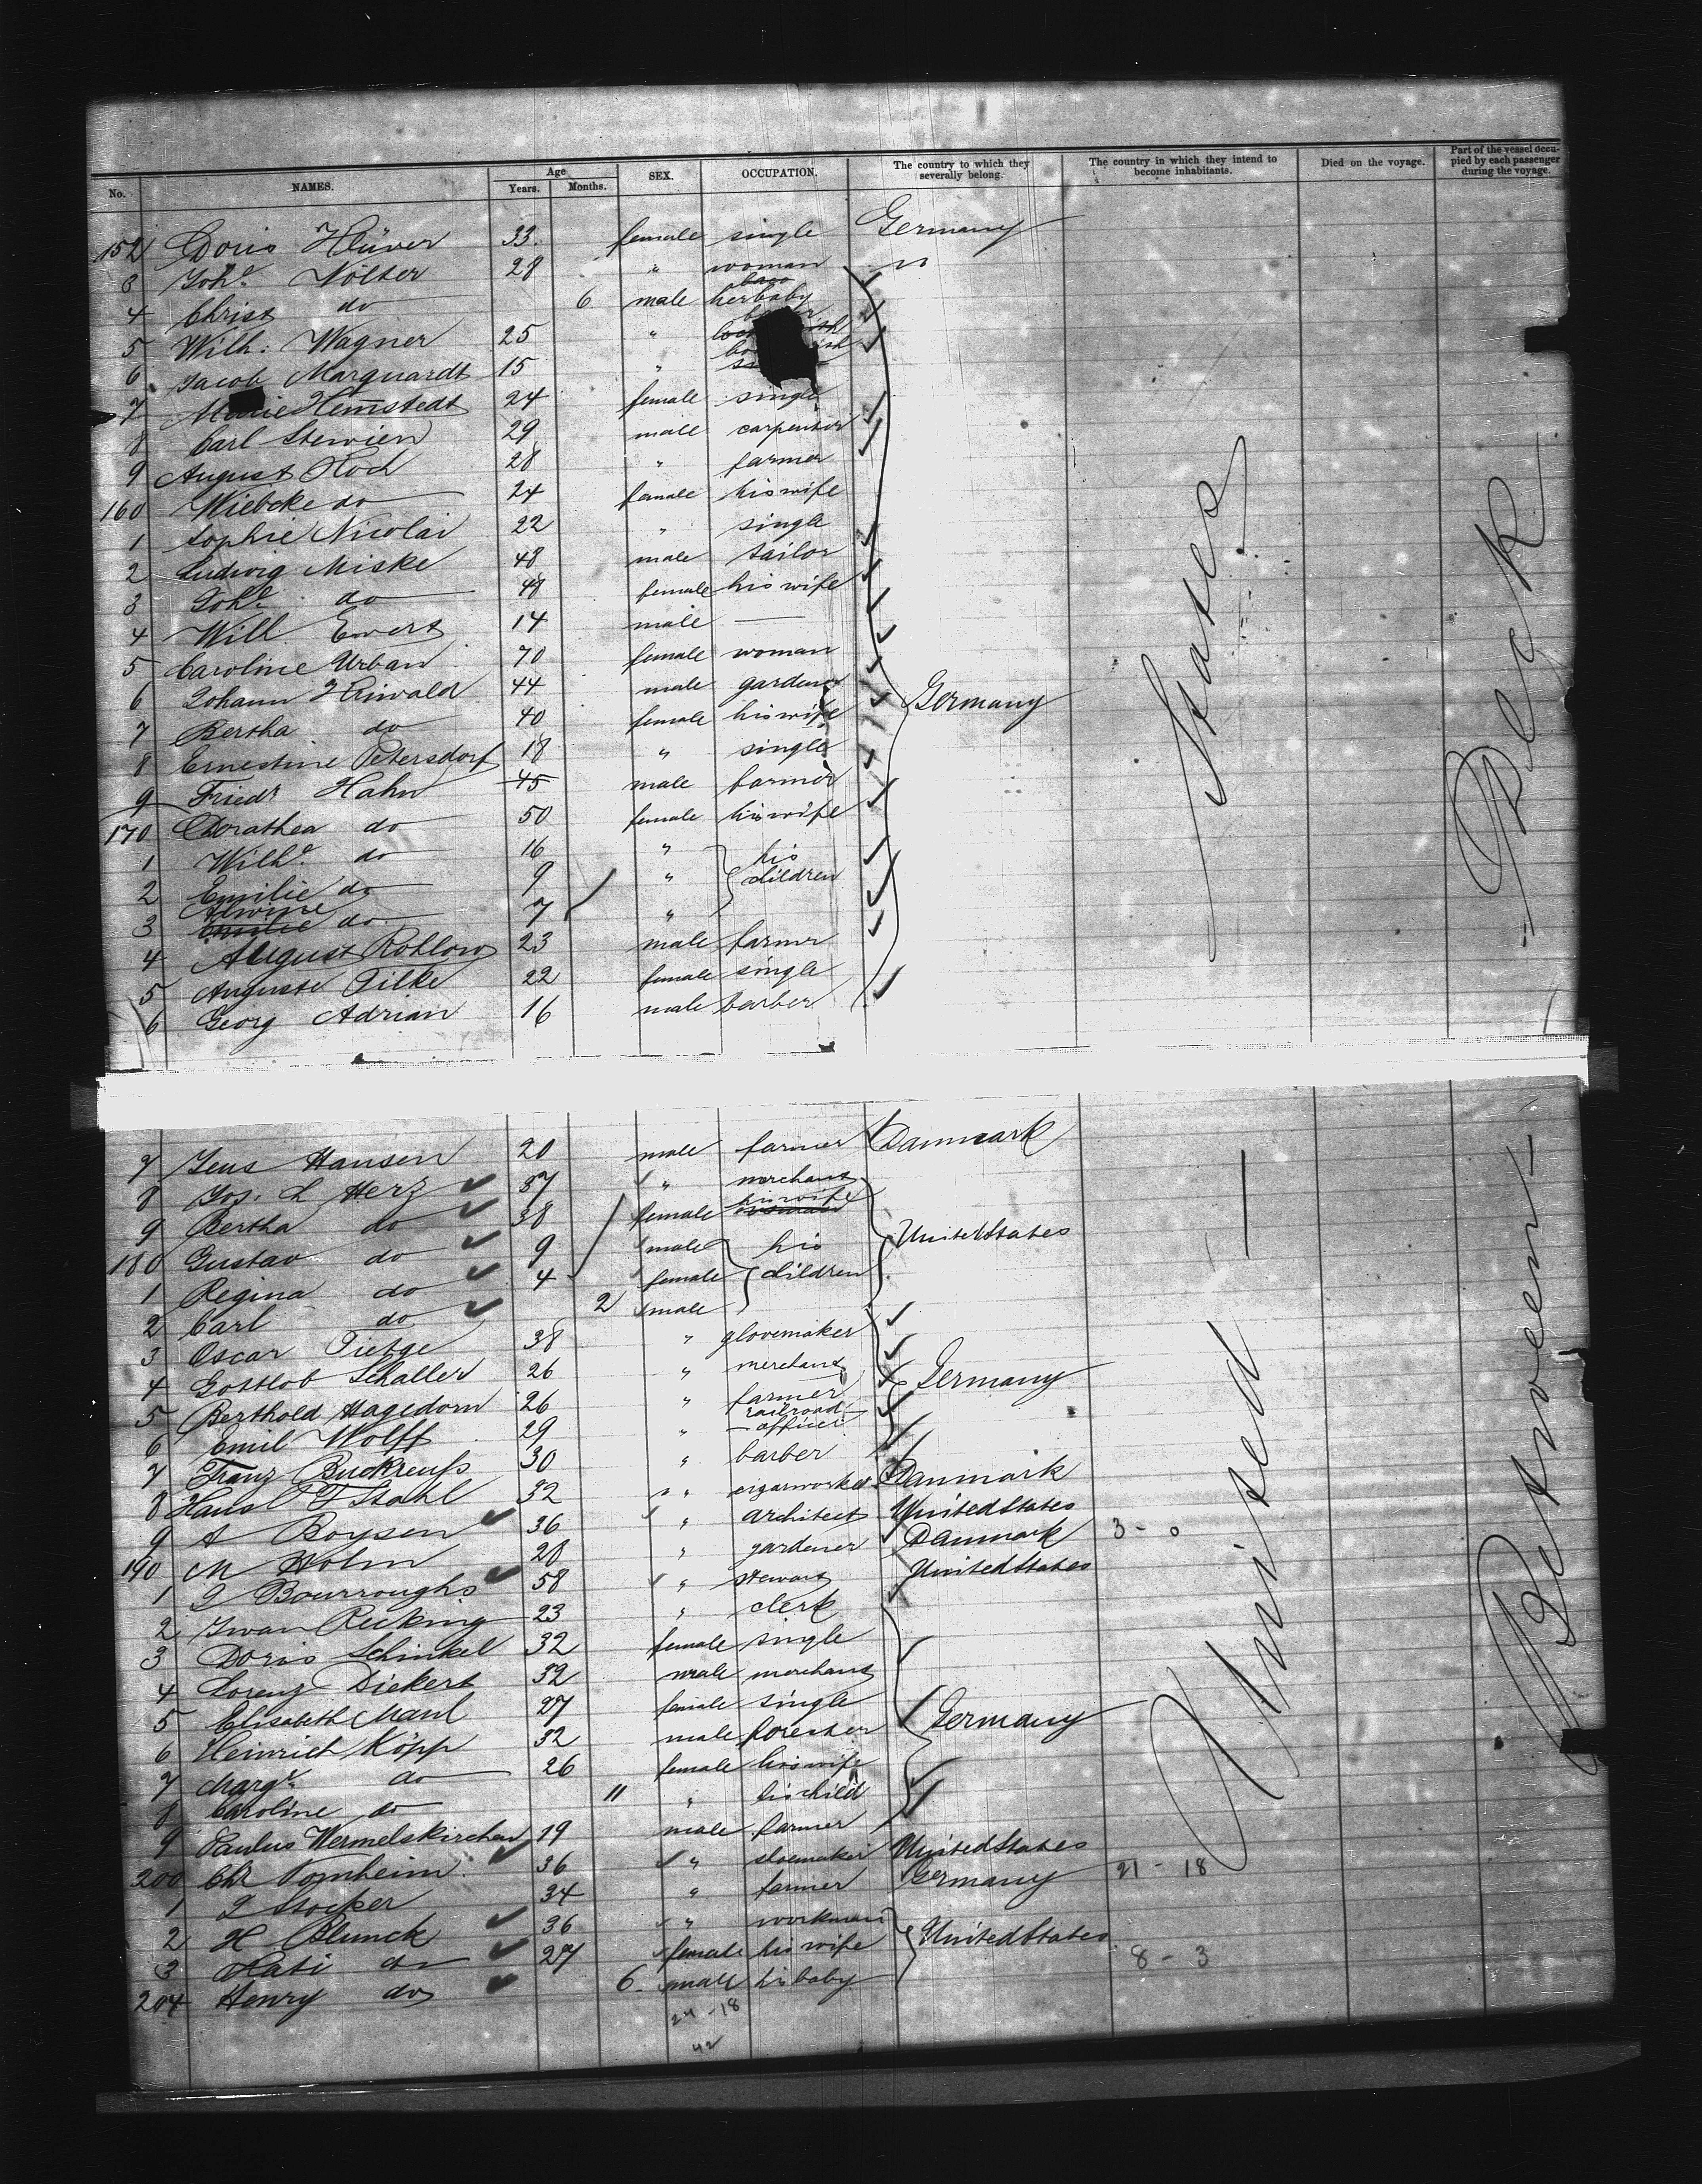 No. NAMES. Age Years. Months. SEX. OCCUPATION. The country to which they severally belong. The country in which they intend to become inhabitants. Died on the voyage. Part of the vessel occupied by each passenger during the voyage.
152 Doris Klüver 33 female single Germany
3 Johe Nolter 28 " woman "
4 Christ do 6 male her baby
5 Wilh: Wagner 25 "
6 Jacob Marquardt 15 "
7 Marie Hemstedt 24 female single
8 Carl Stewien 29 male carpenter
9 August Koch 28 " farmer
160 Wiebcke do 24 female his wife
1 Sophie Nicolai 22 " single
2 Ludwig Miske 48 male tailor
3 Johe do 48 female his wife
4 Wilh Ewert 14 male —
5 Caroline Urban 70 female woman
6 Johann Kriwald 44 male gardener Germany
7 Bertha do 40 female his wife
8 Ernestine Petersdorf 18 " single
9 Friedr Hahn 45 male farmer
170 Dorathea do 50 female his wife
1 Wilhe do 16 " his
2 Emilie do 9 " children
3 Alwine do 7 "
4 August Rohlow 23 male farmer
5 Auguste Pilke 22 female single
6 Georg Adrian 16 male barber
7 Jens Hansen 20 male farmer Danmark
8 Jos. L Herz 37 " merchant
9 Bertha do 38 female his wife
180 Gustav do 9 male his United States
1 Regina do 4 female children
2 Carl do 2 male
3 Oscar Pietge 38 " glovemaker
4 Gottlob Schaller 26 " merchant Germany
5 Berthold Hagedorn 26 " farmer
6 Emil Wolff 29 " railroad officer
7 Franz Buckreuss 30 " barber
8 Hans P T Stahl 32 " cigarworker Danmark
9 A Boysen 36 " architect United States
190 M Holm 28 " gardener Danmark 3 - 0
1 J Bourroughs 58 " stewart United States
2 Iwan Recking 23 " clerk
3 Doris Schinkel 32 female single
4 Lorenz Dickert 32 male merchant
5 Elisabeth Maul 27 female single Germany
6 Heinrich Köpp 32 male forester
7 Marge do 26 female his wife
8 Caroline do 11 " his child
9 Paulus Wermelskirchen 19 male farmer
200 Chr Pomheim 36 " shoemaker United States
1 J Stocker 34 " farmer Germany 21 - 18
2 H Blunck 36 " workman United States
3 Kati do 27 female his wife 8 - 3
204 Henry do 6 male his baby
24 - 18
42
United States
Between Deck